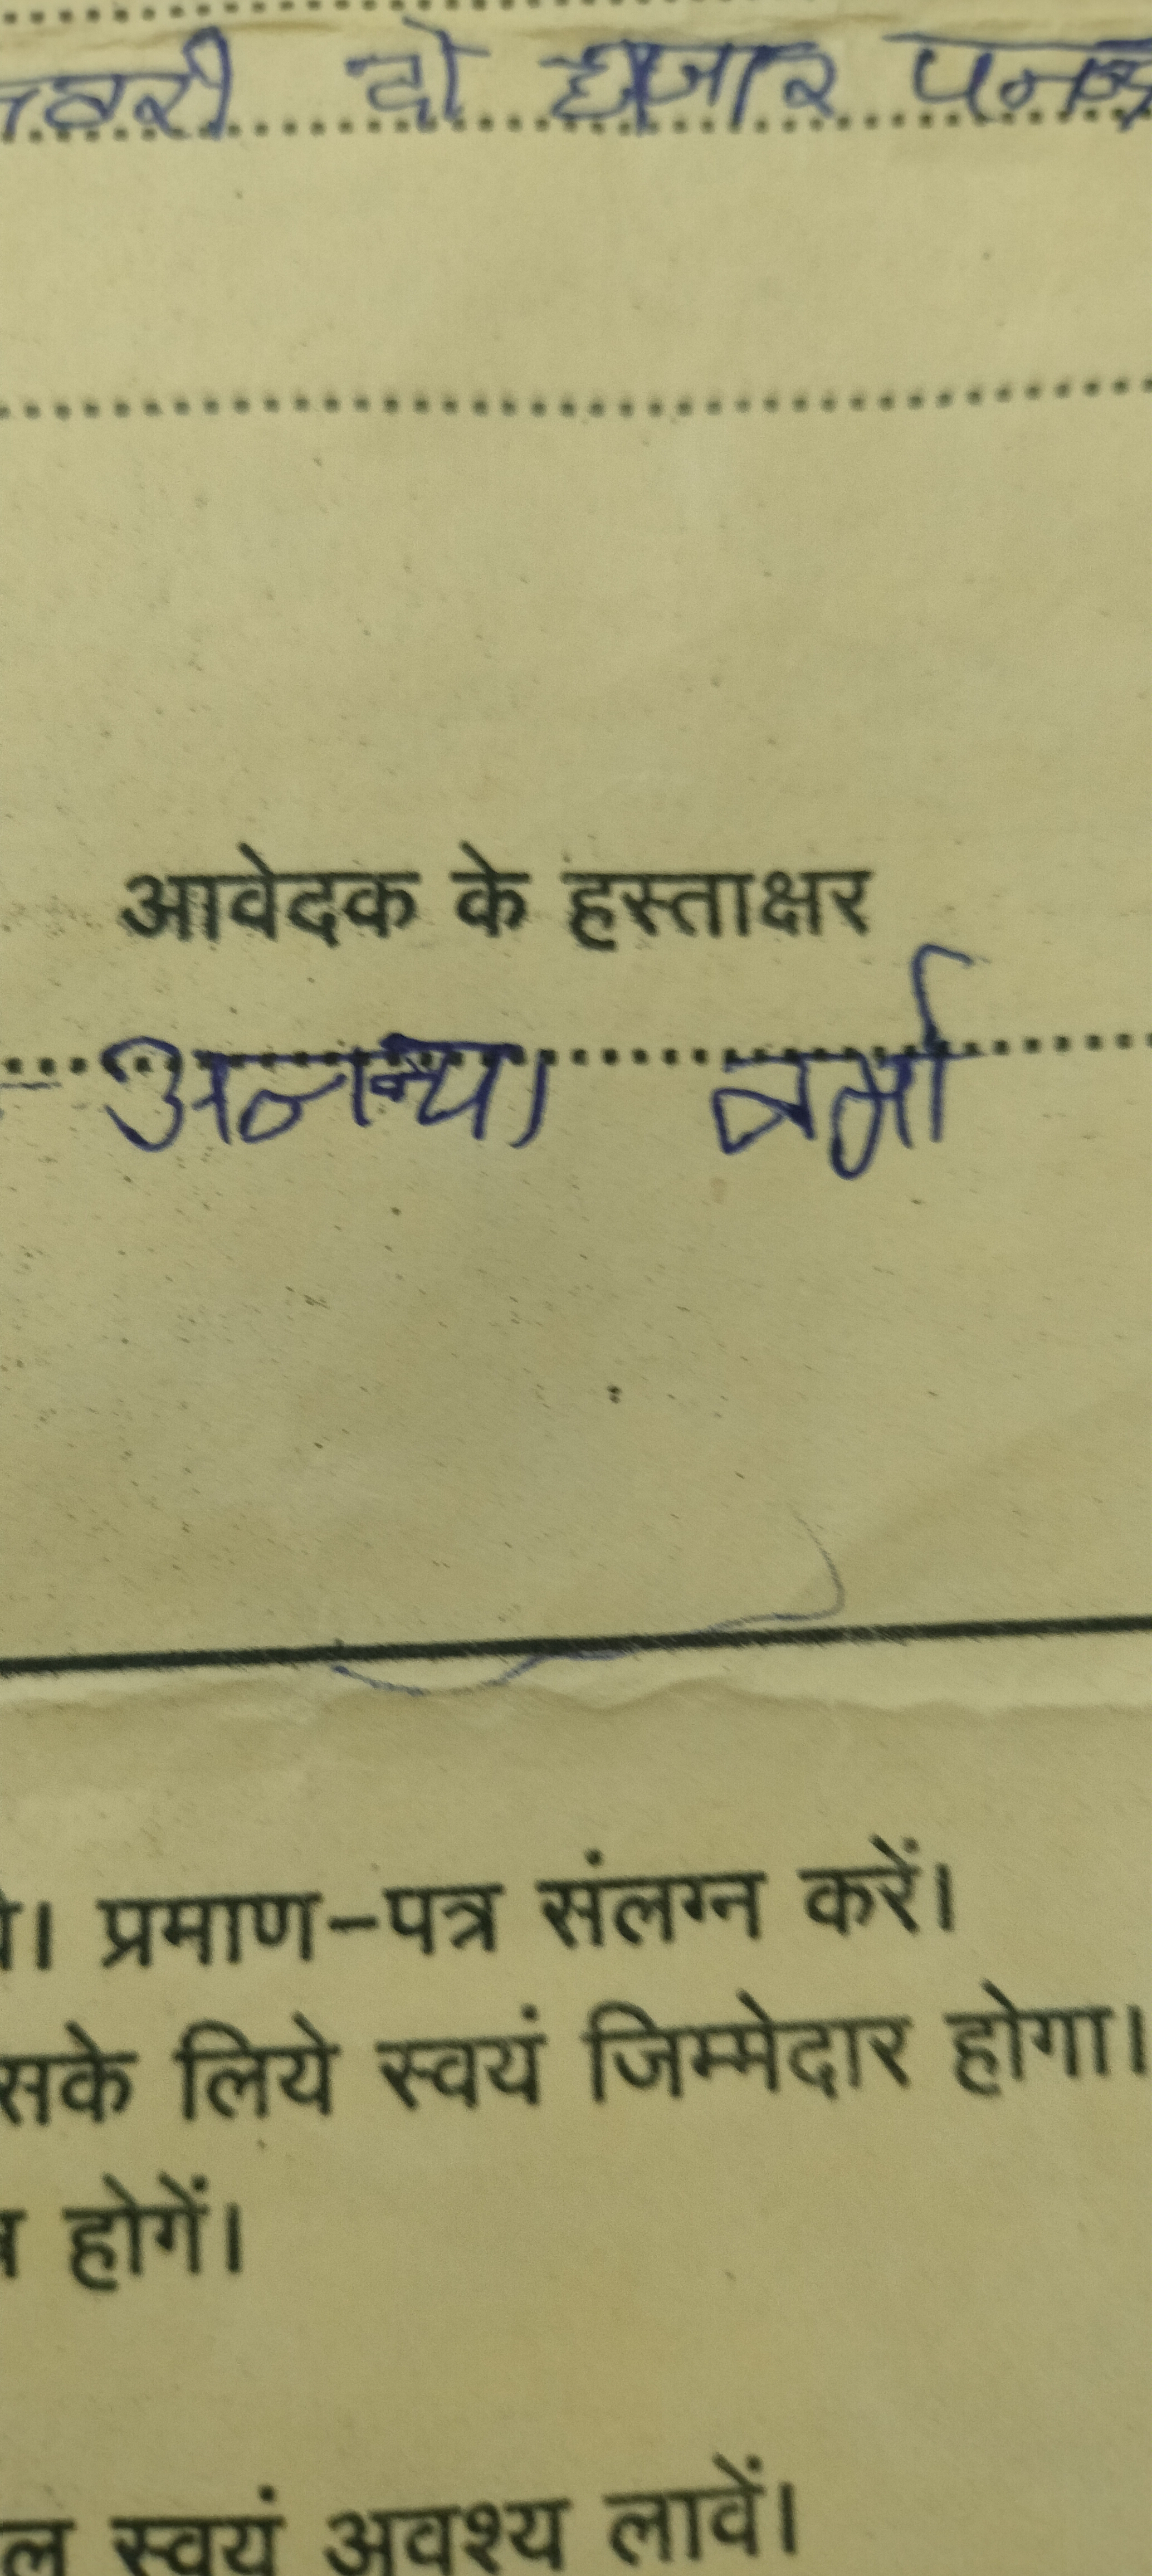 वरी दो हजार पनन्द्र
आवेदक के हस्ताक्षर
अनन्या वर्मा
। प्रमाण-पत्र संलग्न करें।
सके लिये स्वयं जिम्मेदार होगा।
होगें।
ल स्वयं अवश्य लावें।